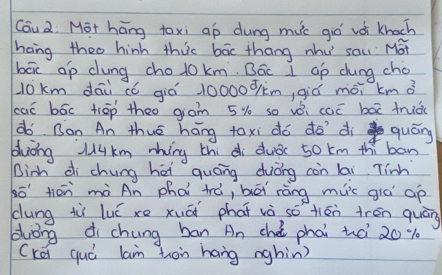 Câu 2: Một hãng taxi áp dụng mức giá với khách
hàng theo hình thức bậc thang như sau: Mỗi
bậc áp dụng cho 10 km. Bậc 1 áp dụng cho
10 km đầu có giá 10000đ/km, giá mỗi km ở
các bậc tiếp theo giảm 5% so với các bậc trước
đó. Bạn An thuê hãng taxi đó để đi quãng
đường 114 km nhưng khi đi được 50 km thì bạn
Bình đi chung hết quãng đường còn lại. Tính
số tiền mà An phải trả, biết rằng mức giá áp
dụng từ lúc xe xuất phát và số tiền trên quãng
đường đi chung bạn An chỉ phải trả 20%
(kết quả làm tròn hàng nghìn)